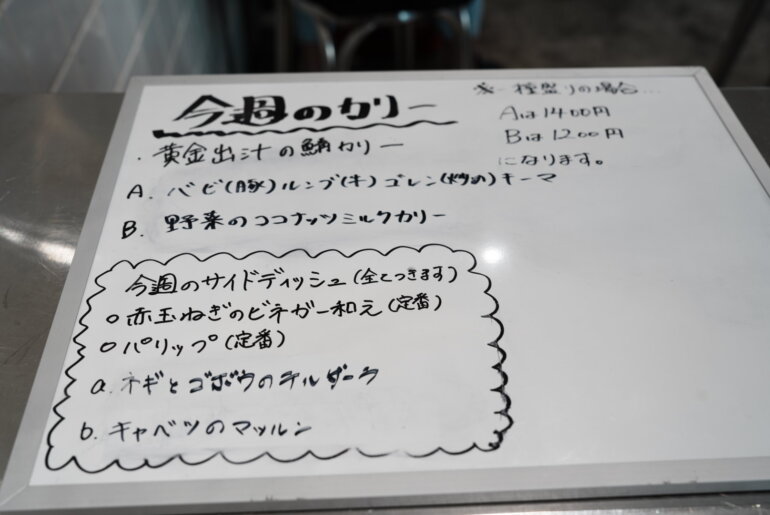 今週のカリー
※一種盛りの場合...
Aは1400円
Bは1200円
になります。
・黄金出汁の鯖カリー
A. バビ(豚)ルンブ(牛)ゴレン(炒め)キーマ
B. 野菜のココナッツミルクカリー
今週のサイドディッシュ(全てつきます)
○赤玉ねぎのビネガー和え(定番)
○パリップ(定番)
a. ネギとゴボウのテルダーラ
b. キャベツのマッルン